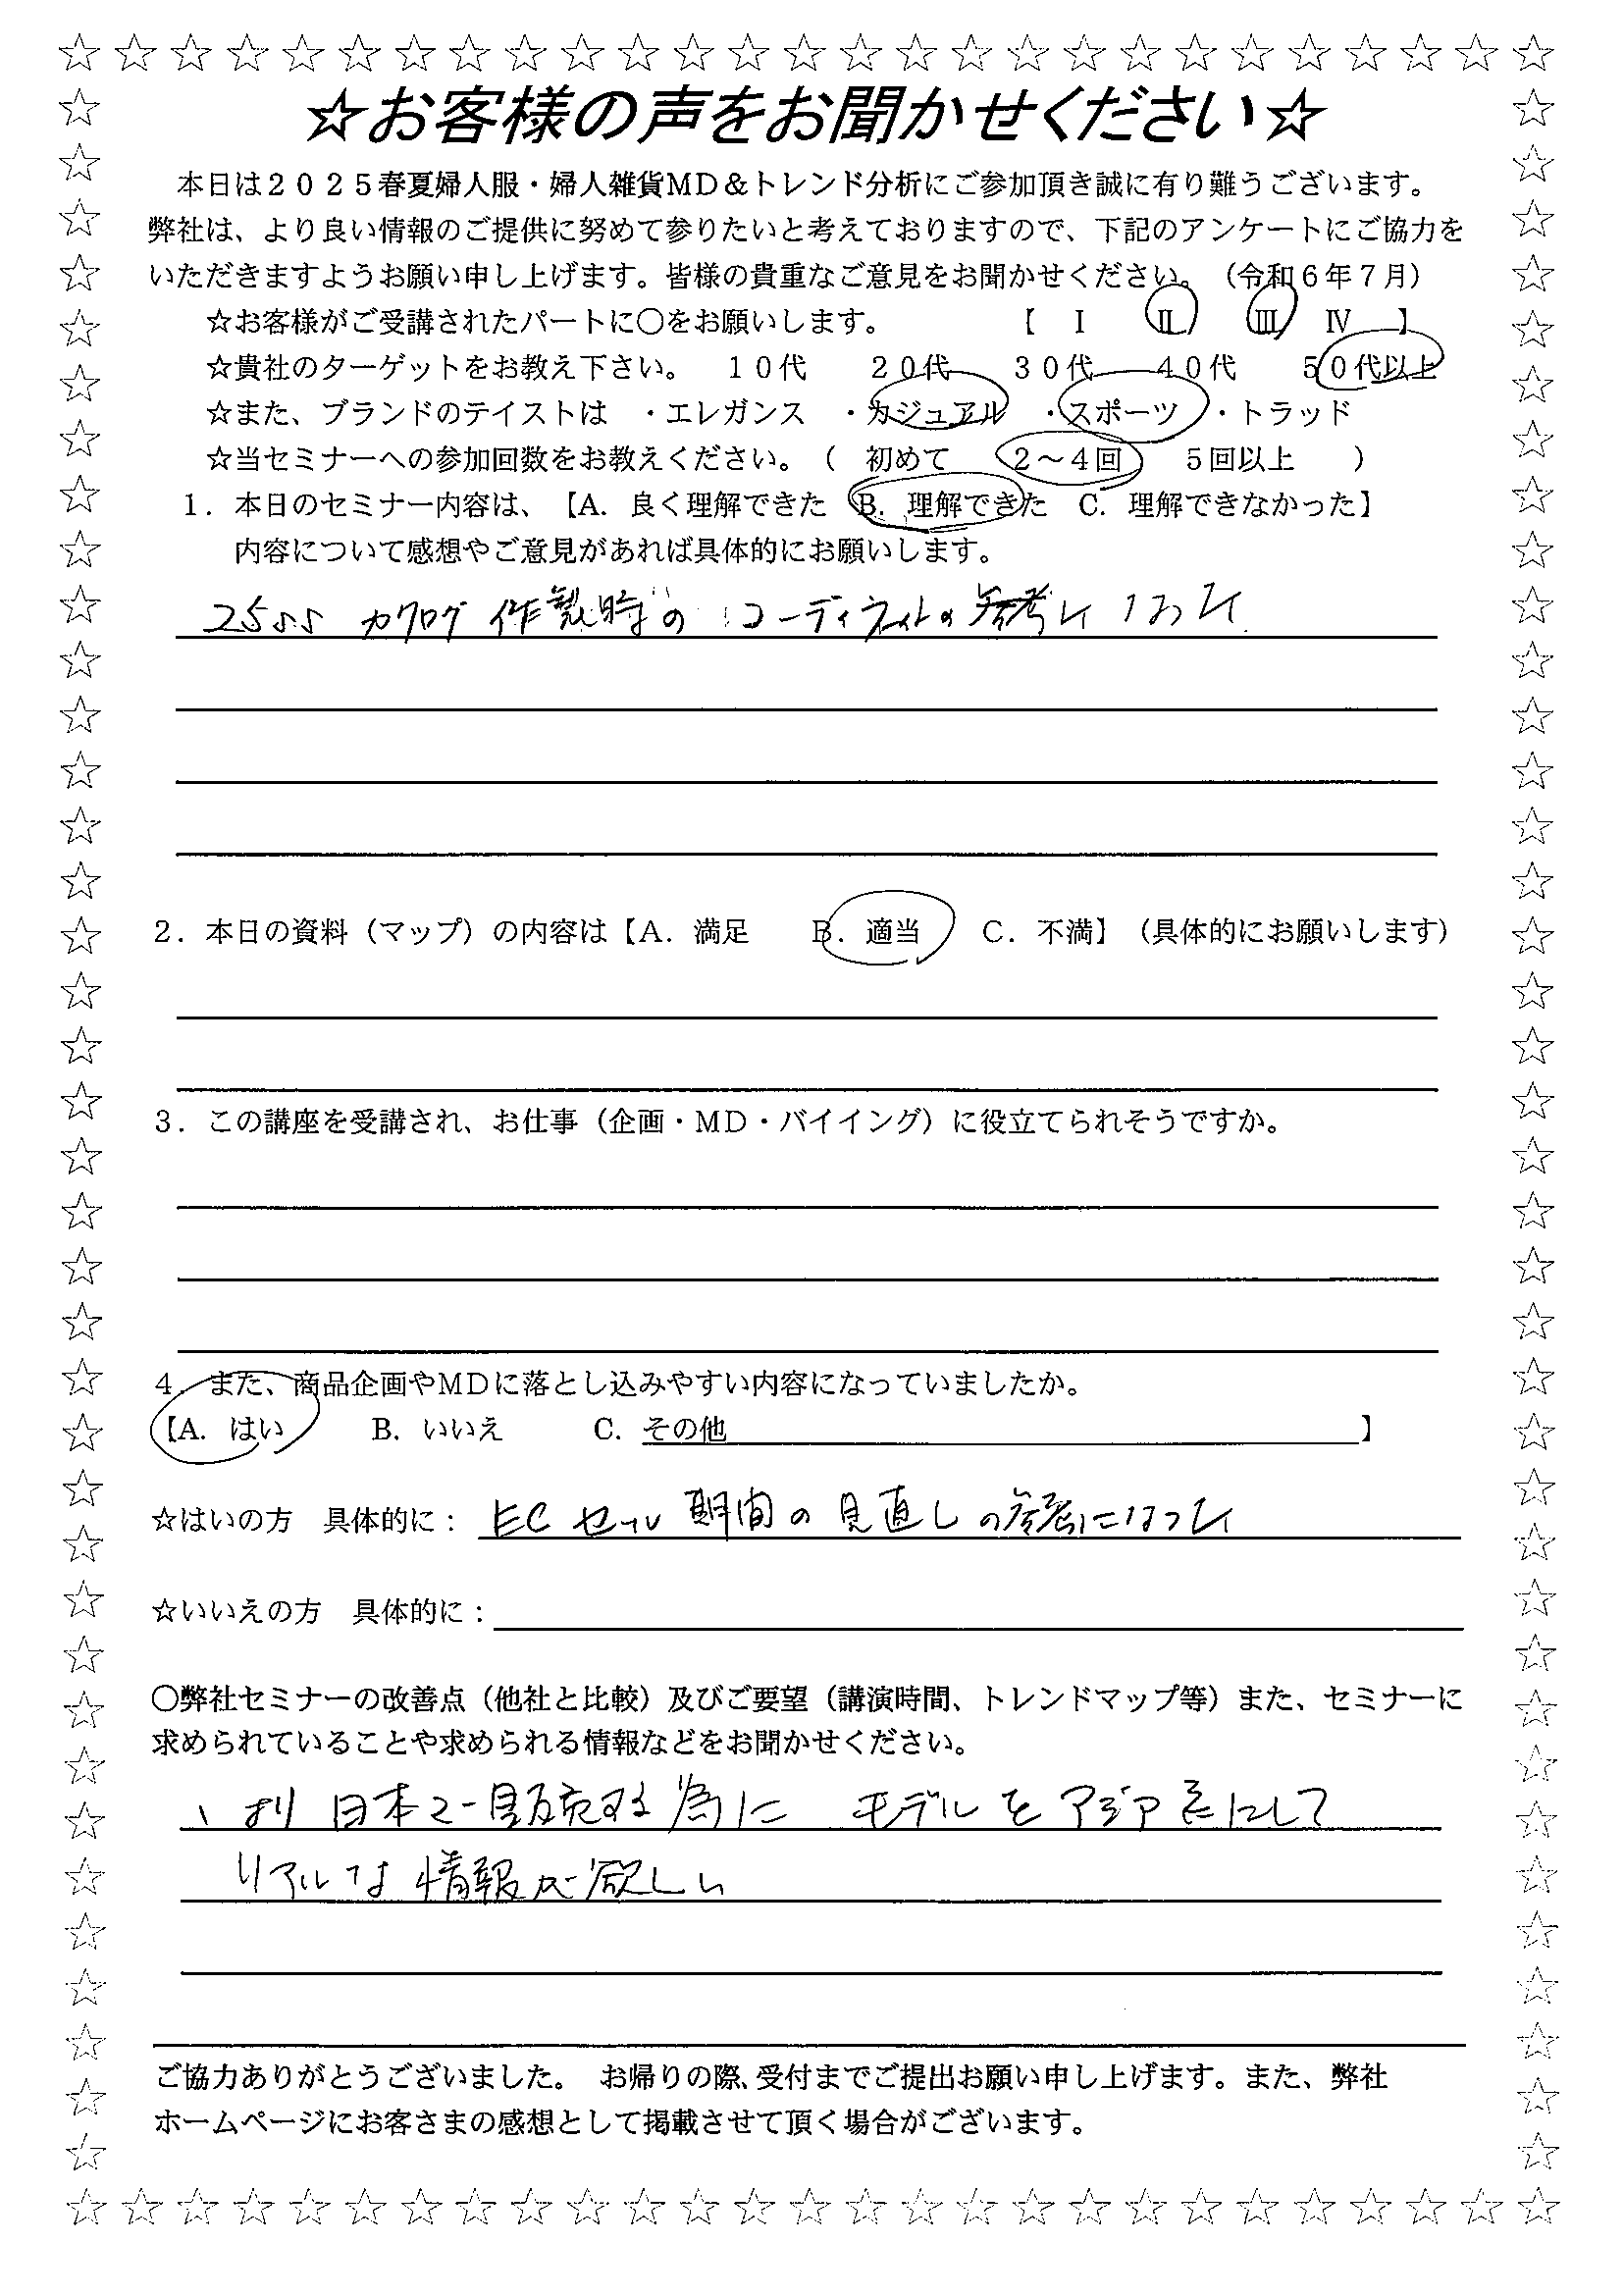 ☆お客様の声をお聞かせください☆
本日は2025春夏婦人服・婦人雑貨MD＆トレンド分析にご参加頂き誠に有り難うございます。
弊社は、より良い情報のご提供に努めて参りたいと考えておりますので、下記のアンケートにご協力を
いただきますようお願い申し上げます。皆様の貴重なご意見をお聞かせください。（令和６年７月）
☆お客様がご受講されたパートに〇をお願いします。　【　Ⅰ　Ⅱ　Ⅲ　Ⅳ　】
☆貴社のターゲットをお教え下さい。　１０代　２０代　３０代　４０代　５０代以上
☆また、ブランドのテイストは　・エレガンス　・カジュアル　・スポーツ　・トラッド
☆当セミナーへの参加回数をお教えください。（　初めて　２～４回　５回以上　）
１．本日のセミナー内容は、【A．良く理解できた　B．理解できた　C．理解できなかった】
内容について感想やご意見があれば具体的にお願いします。
25SS カタログ 作製時の コーディネイトの 参考になった
２．本日の資料（マップ）の内容は【A．満足　B．適当　C．不満】（具体的にお願いします）
３．この講座を受講され、お仕事（企画・MD・バイイング）に役立てられそうですか。
４．また、商品企画やMDに落とし込みやすい内容になっていましたか。
【A．はい　B．いいえ　C．その他　】
☆はいの方　具体的に： EC セール 期間の見直しの参考になった
☆いいえの方　具体的に：
〇弊社セミナーの改善点（他社と比較）及びご要望（講演時間、トレンドマップ等）また、セミナーに
求められていることや求められる情報などをお聞かせください。
、より 日本で 販売する為に モデルを アジア系にして
リアルな 情報が欲しい
ご協力ありがとうございました。　お帰りの際、受付までご提出お願い申し上げます。また、弊社
ホームページにお客さまの感想として掲載させて頂く場合がございます。